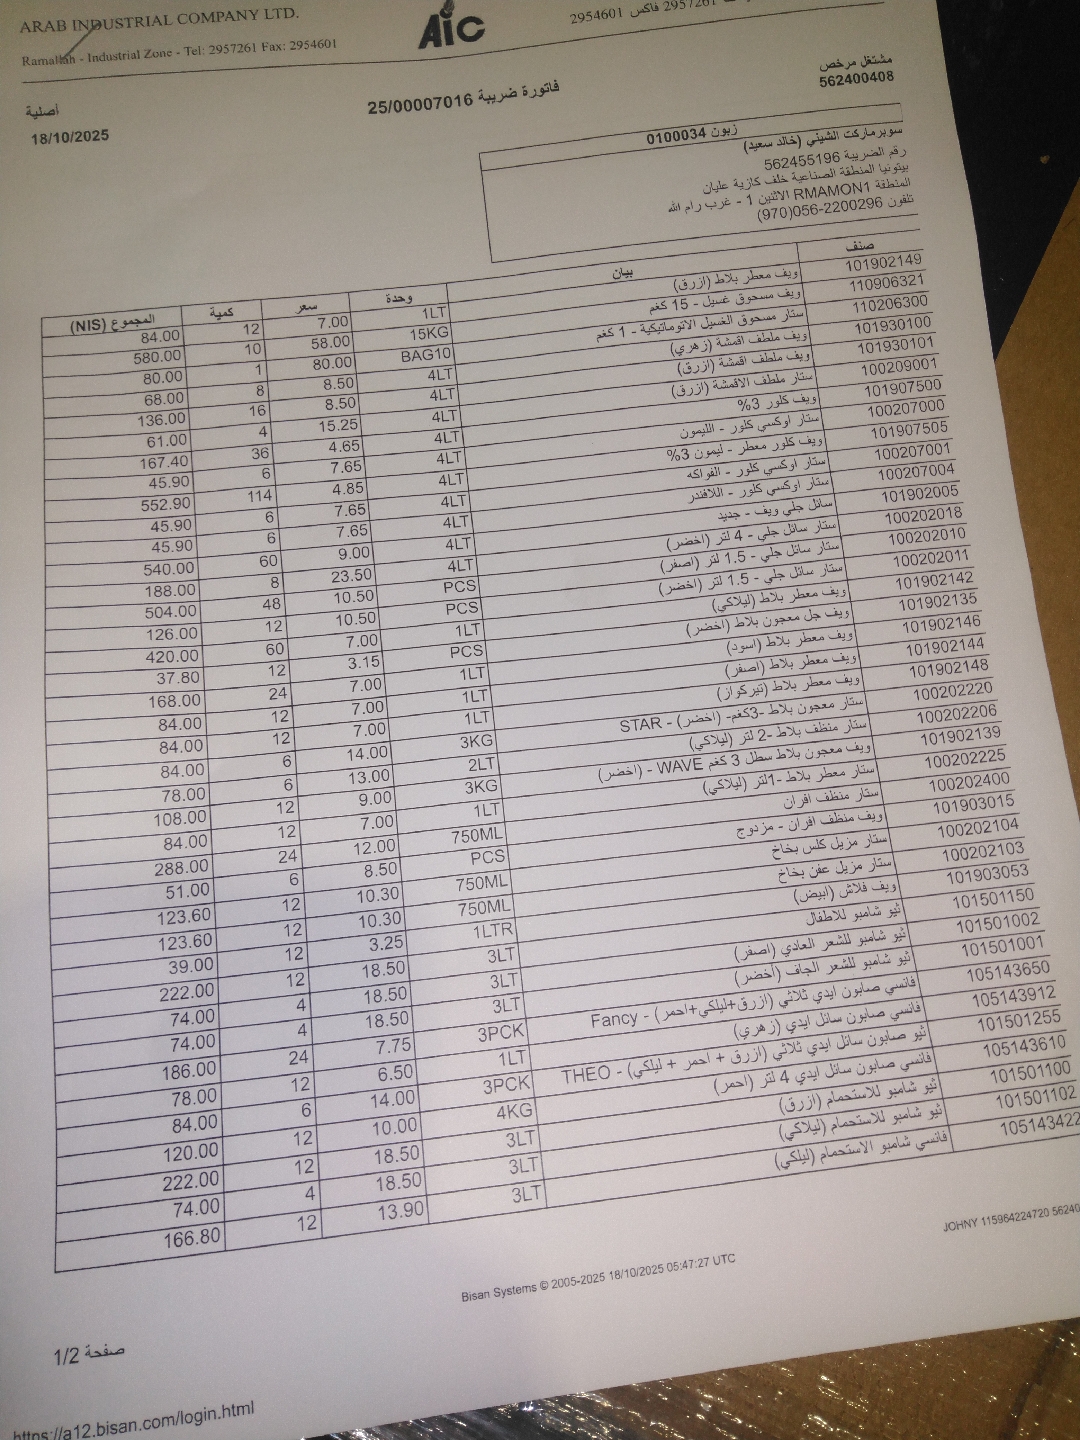 ARAB INDUSTRIAL COMPANY LTD.
Ramallah - Industrial Zone - Tel: 2957261 Fax: 2954601
AiC
2957261 فاكس 2954601
أصلية
18/10/2025
فاتورة ضريبة 25/00007016
مشتغل مرخص
562400408
زبون 0100034
سوبرماركت الشيني (خالد سعيد)
رقم الضريبة 562455196
بيتونيا المنطقة الصناعية خلف كازية عليان
المنطقة RMAMON1 الاثنين 1 - غرب رام الله
تلفون 056-2200296(970)
صنف بيان وحدة سعر كمية المجموع (NIS)
101902149 ويف معطر بلاط (ازرق) 1LT 7.00 12 84.00
110906321 ويف مسحوق غسيل - 15 كغم 15KG 58.00 10 580.00
110206300 ستار مسحوق الغسيل الاتوماتيكية - 1 كغم BAG10 80.00 1 80.00
101930100 ويف ملطف اقمشة (زهري) 4LT 8.50 8 68.00
101930101 ويف ملطف اقمشة (ازرق) 4LT 8.50 16 136.00
100209001 ستار ملطف الاقمشة (ازرق) 4LT 15.25 4 61.00
101907500 ويف كلور 3% 4LT 4.65 36 167.40
100207000 ستار اوكسي كلور - الليمون 4LT 7.65 6 45.90
101907505 ويف كلور معطر - ليمون 3% 4LT 4.85 114 552.90
100207001 ستار اوكسي كلور - الفواكه 4LT 7.65 6 45.90
100207004 ستار اوكسي كلور - اللافندر 4LT 7.65 6 45.90
101902005 سائل جلي ويف - جديد 4LT 9.00 60 540.00
100202018 ستار سائل جلي - 4 لتر (اخضر) 4LT 23.50 8 188.00
100202010 ستار سائل جلي - 1.5 لتر (اصفر) PCS 10.50 48 504.00
100202011 ستار سائل جلي - 1.5 لتر (اخضر) PCS 10.50 12 126.00
101902142 ويف معطر بلاط (ليلاكي) 1LT 7.00 60 420.00
101902135 ويف جل معجون بلاط (اخضر) PCS 3.15 12 37.80
101902146 ويف معطر بلاط (اسود) 1LT 7.00 24 168.00
101902144 ويف معطر بلاط (اصفر) 1LT 7.00 12 84.00
101902148 ويف معطر بلاط (تيركواز) 1LT 7.00 12 84.00
100202220 ستار معجون بلاط -3كغم- (اخضر) - STAR 3KG 14.00 6 84.00
100202206 ستار منظف بلاط -2 لتر (ليلاكي) 2LT 13.00 6 78.00
101902139 ويف معجون بلاط سطل 3 كغم WAVE - (اخضر) 3KG 9.00 12 108.00
100202225 ستار معطر بلاط -1لتر (ليلاكي) 1LT 7.00 12 84.00
100202400 ستار منظف افران 750ML 12.00 24 288.00
101903015 ويف منظف افران - مزدوج PCS 8.50 6 51.00
100202104 ستار مزيل كلس بخاخ 750ML 10.30 12 123.60
100202103 ستار مزيل عفن بخاخ 750ML 10.30 12 123.60
101903053 ويف فلاش (ابيض) 1LTR 3.25 12 39.00
101501150 ثيو شامبو للاطفال 3LT 18.50 12 222.00
101501002 ثيو شامبو للشعر العادي (اصفر) 3LT 18.50 4 74.00
101501001 ثيو شامبو للشعر الجاف (أخضر) 3LT 18.50 4 74.00
105143650 فانسي صابون ايدي ثلاثي (ازرق+ليلكي+احمر) - Fancy 3PCK 7.75 24 186.00
105143912 فانسي صابون سائل ايدي (زهري) 1LT 6.50 12 78.00
101501255 ثيو صابون سائل ايدي ثلاثي (ازرق + احمر + ليلكي) - THEO 3PCK 14.00 6 84.00
105143610 فانسي صابون سائل ايدي 4 لتر (احمر) 4KG 10.00 12 120.00
101501100 ثيو شامبو للاستحمام (ازرق) 3LT 18.50 12 222.00
101501102 ثيو شامبو للاستحمام (ليلاكي) 3LT 18.50 4 74.00
105143422 فانسي شامبو الاستحمام (ليلكي) 3LT 13.90 12 166.80
JOHNY 115964224720 56240
Bisan Systems © 2005-2025 18/10/2025 05:47:27 UTC
صفحة 1/2
https://a12.bisan.com/login.html